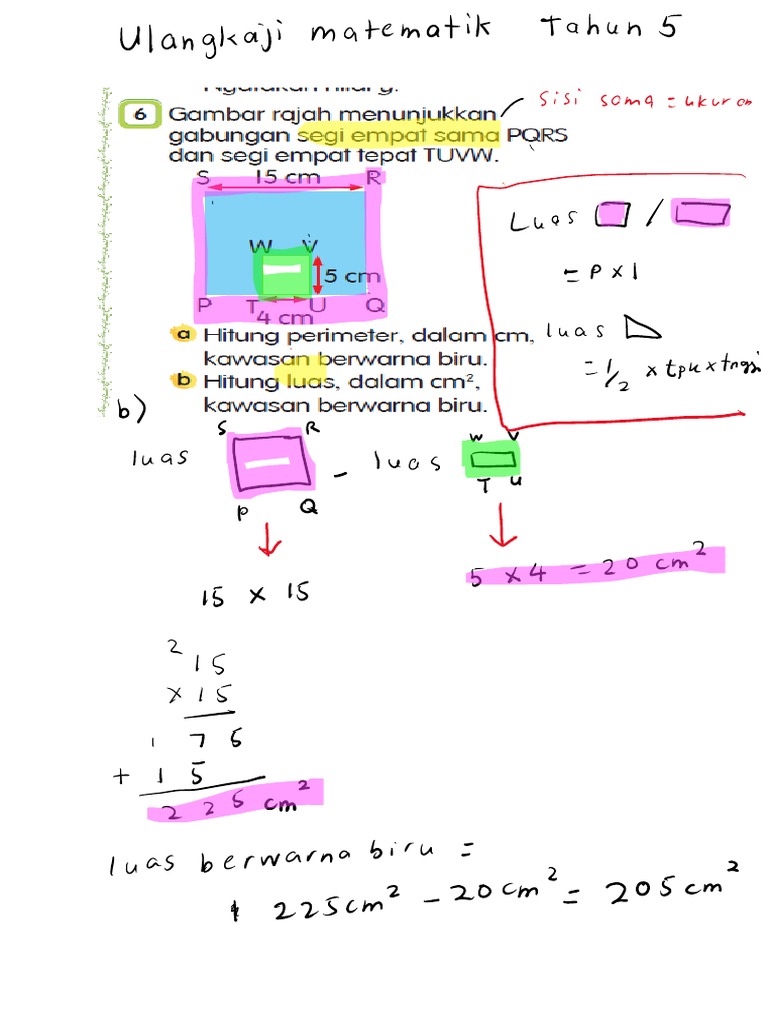 Ulangkaji matematik Tahun 5
sisi sama = ukuran
6 Gambar rajah menunjukkan
gabungan segi empat sama PQRS
dan segi empat tepat TUVW.
S 15 cm R
W V
5 cm
P T U Q
4 cm
Luas /
= P x l
luas
= 1/2 x tpk x tnggi
a Hitung perimeter, dalam cm,
kawasan berwarna biru.
b Hitung luas, dalam cm²,
kawasan berwarna biru.
b)
S R W V
luas - luas
P Q T U
15 x 15
5 x 4 = 20 cm²
2
15
x 15
1 7 5
+ 1 5
2 2 5 cm²
luas berwarna biru =
225cm² - 20cm² = 205cm²